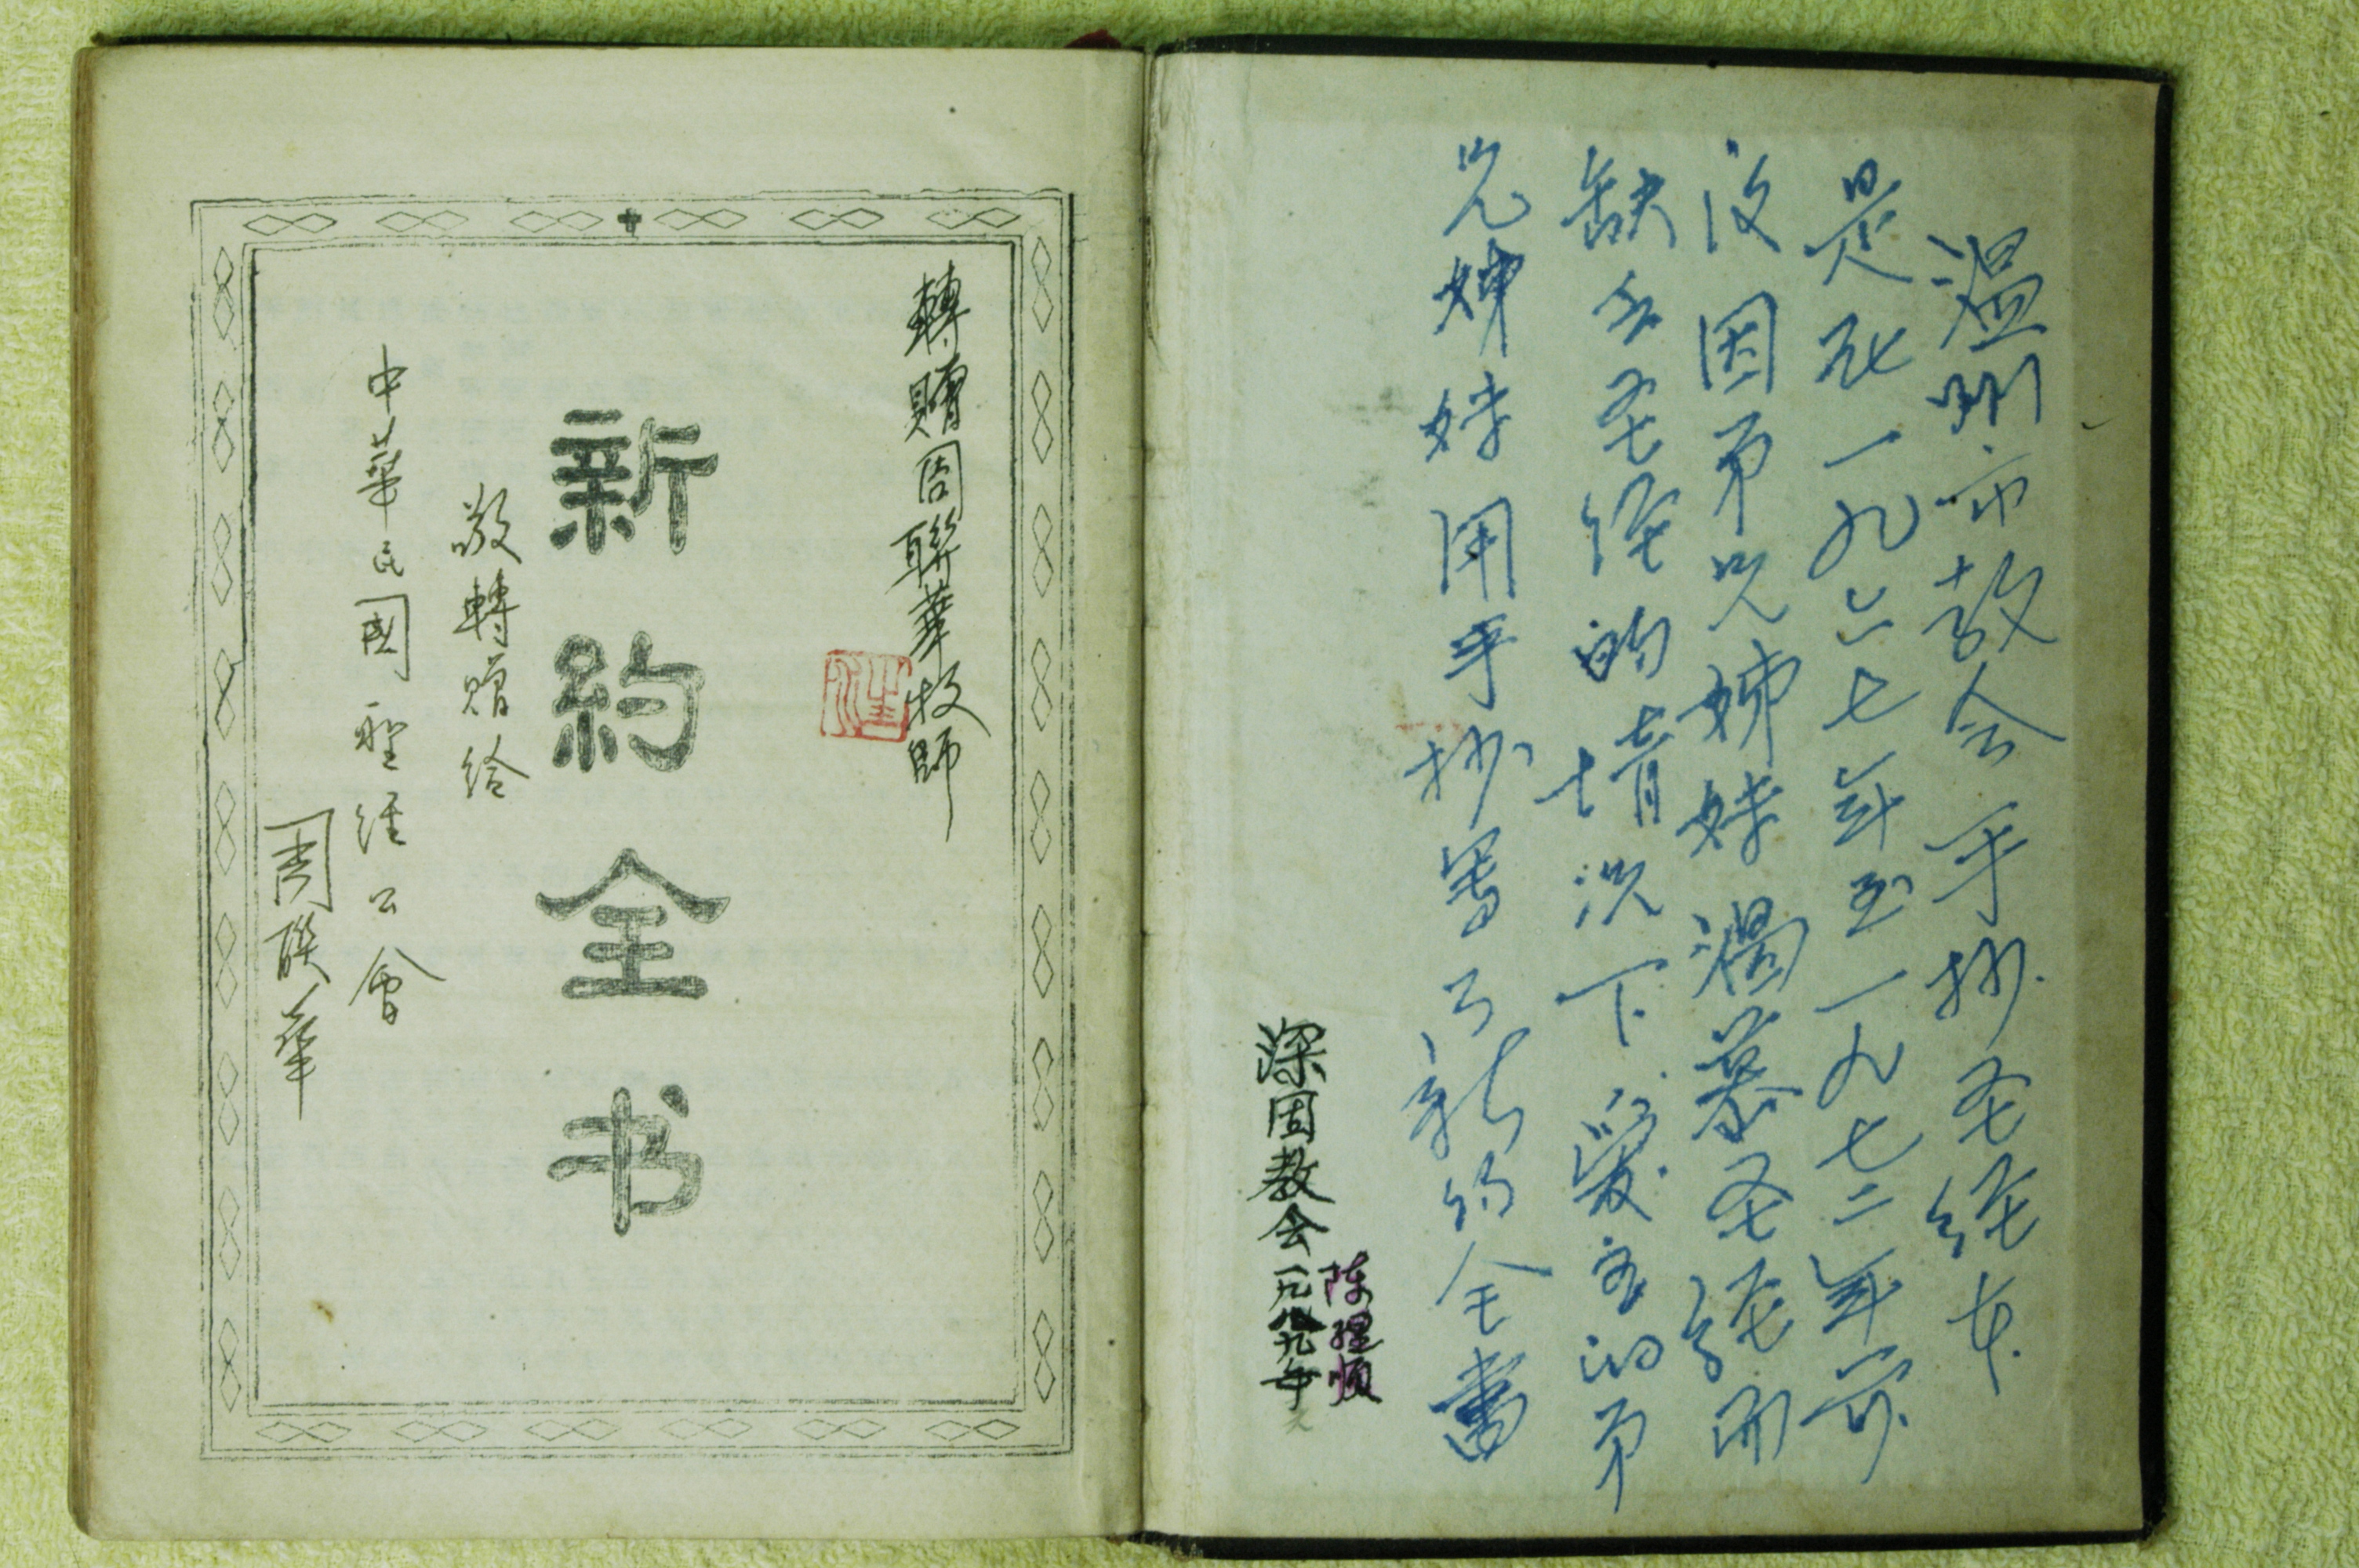 温州市教会手抄圣经本
是一九六七年至一九七二年前
因弟兄姊妹渴慕圣经
缺乏圣经的情况下爱主的弟
兄姊妹用手抄写了新约全書
陈顺
深固教会一九八九年
轉贈周聯華牧師
新約全书
敬轉贈给
中華民國聖經公會
周聯華